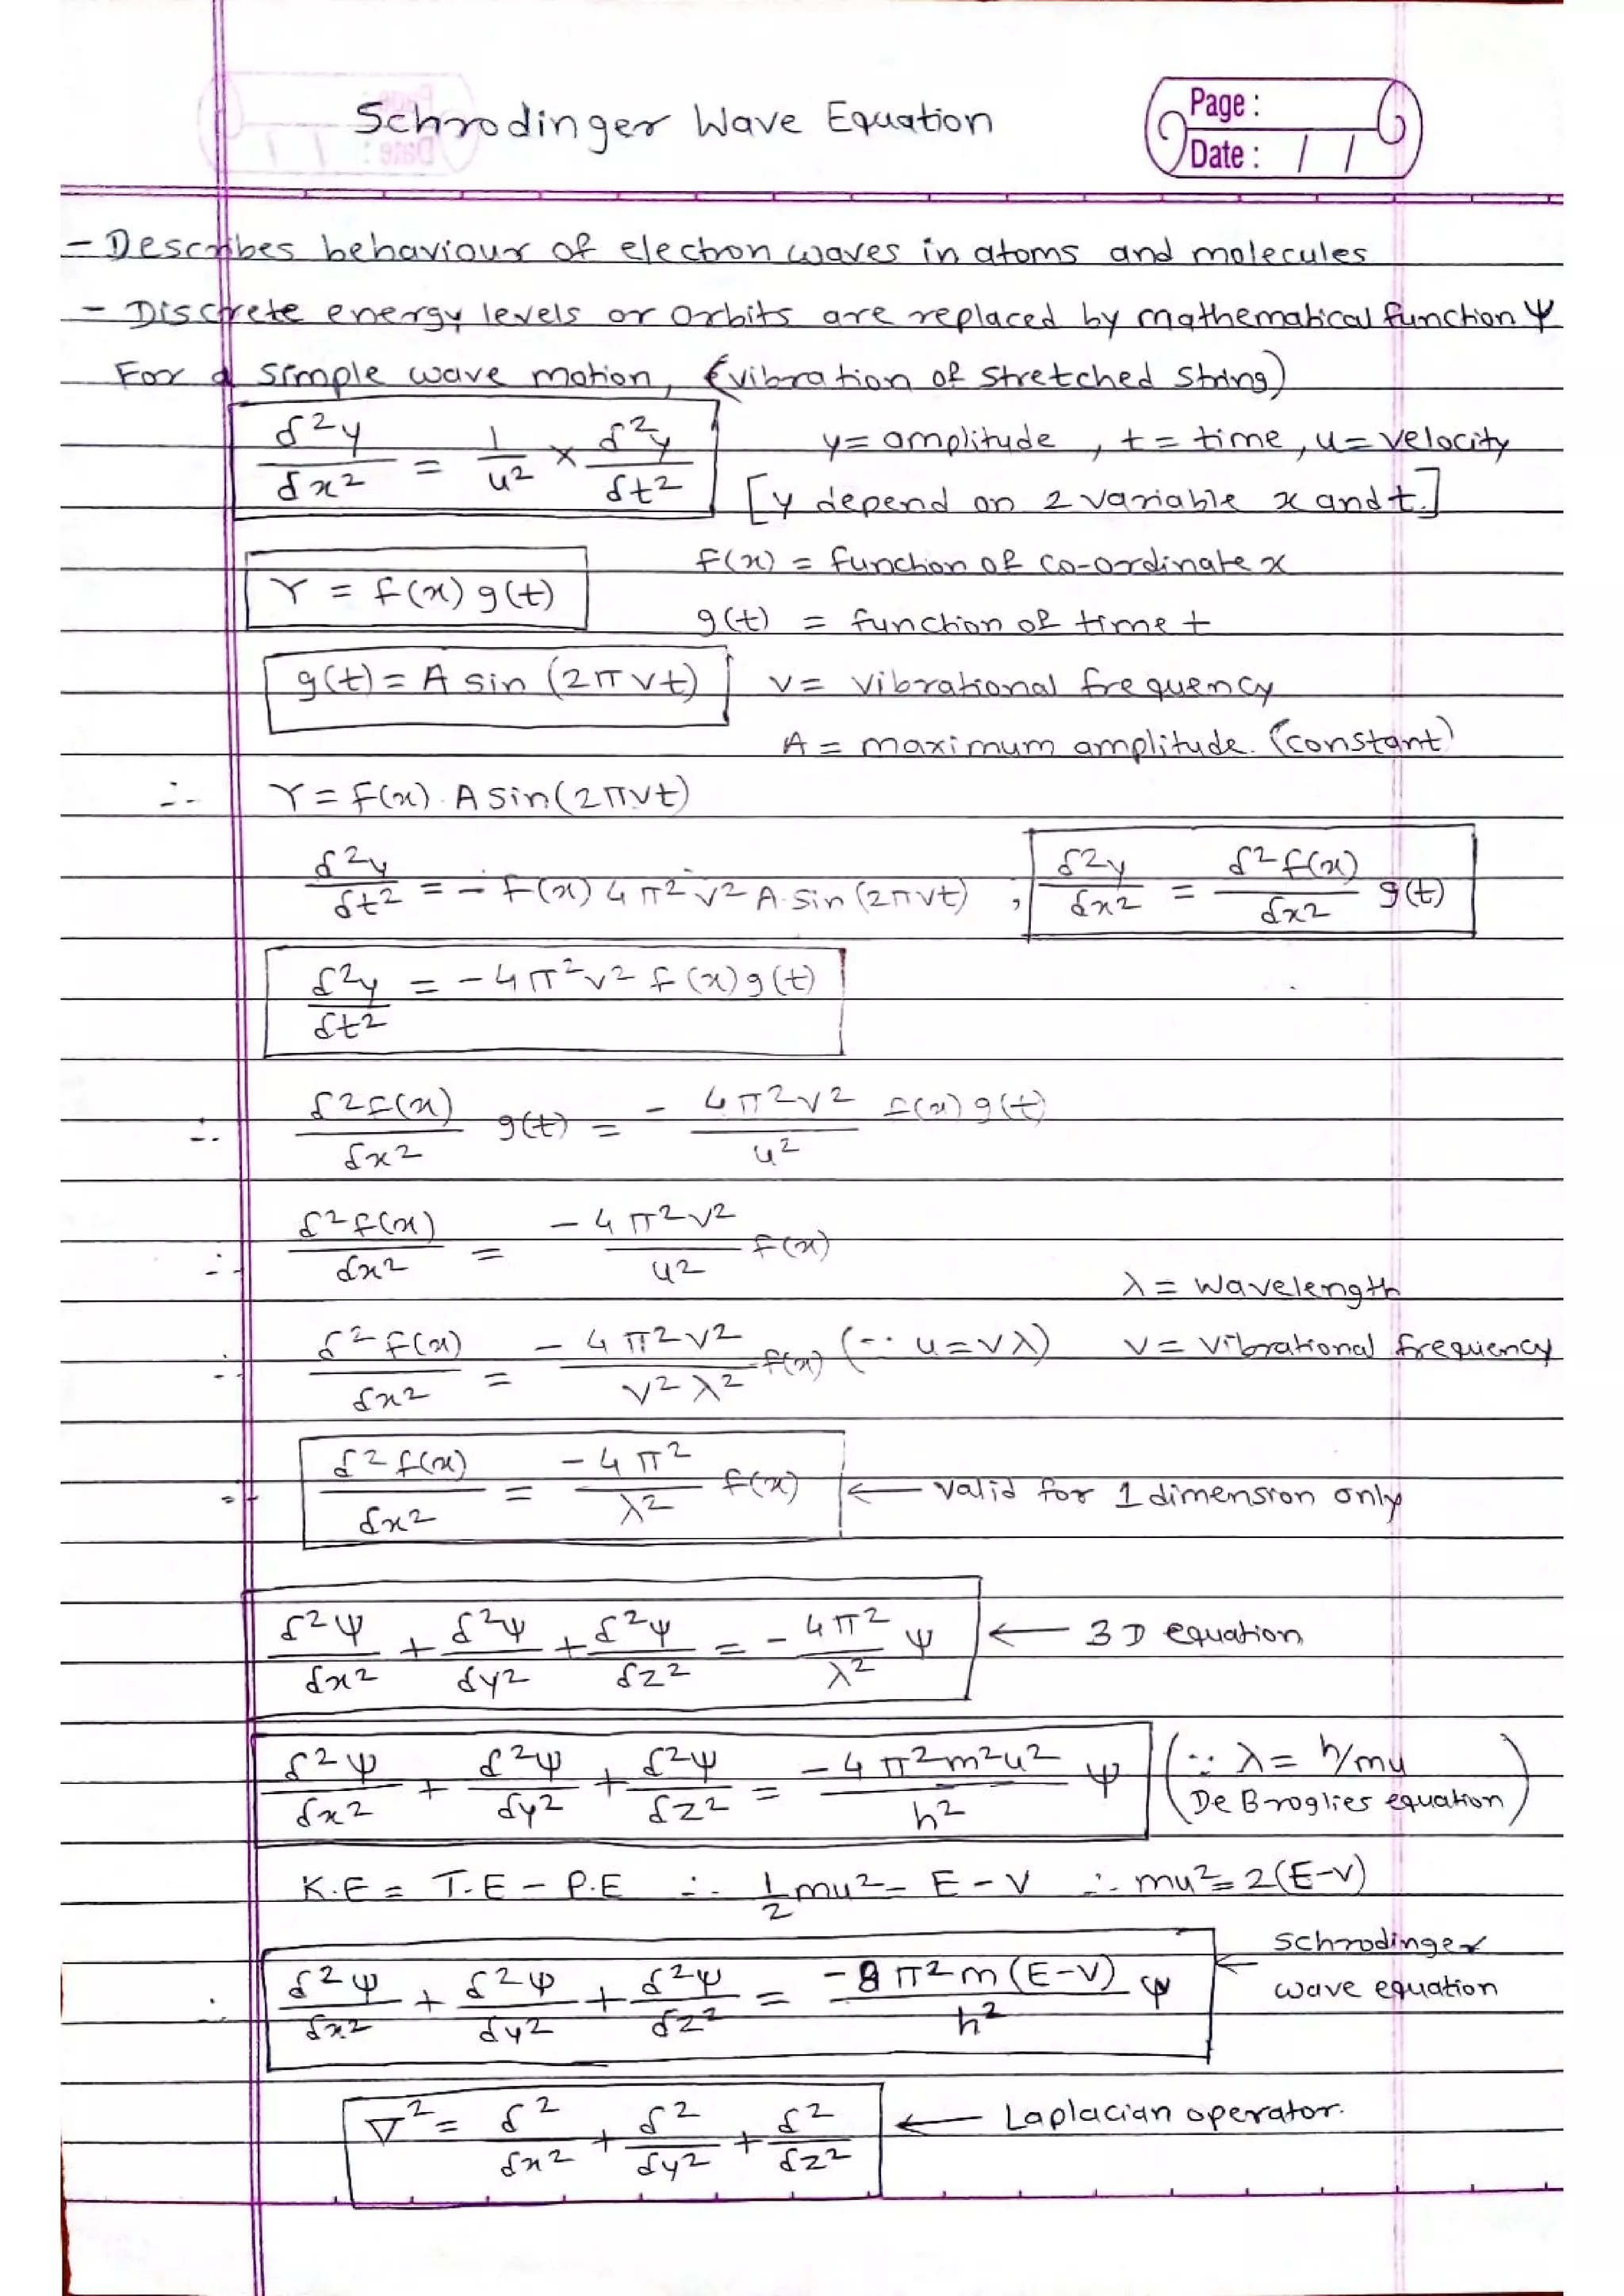 Schrodinger Wave Equation
Page :
Date : / /
- Describes behaviour of electron waves in atoms and molecules
- Discrete energy levels or orbits are replaced by mathematical function Ψ
For a simple wave motion, (vibration of stretched string)
δ²y/δx² = 1/u² × δ²y/δt²    y = amplitude , t = time , u = velocity
[y depend on 2 variable x and t.]
Y = f(x) g(t)    f(x) = function of co-ordinate x
g(t) = function of time t
g(t) = A sin (2πνt)    ν = vibrational frequency
A = maximum amplitude. (constant)
∴ Y = f(x) . A sin(2πνt)
δ²y/δt² = - f(x) 4π²ν² A.sin(2πνt) , δ²y/δx² = δ²f(x)/δx² g(t)
δ²y/δt² = -4π²ν² f(x) g(t)
∴ δ²f(x)/δx² g(t) = - 4π²ν²/u² f(x) g(t)
∴ δ²f(x)/δx² = -4π²ν²/u² f(x)
λ = wavelength
∴ δ²f(x)/δx² = -4π²ν²/ν²λ² f(x) (∵ u = νλ)    ν = vibrational frequency
∴ δ²f(x)/δx² = -4π²/λ² f(x) ← valid for 1 dimension only
δ²ψ/δx² + δ²ψ/δy² + δ²ψ/δz² = - 4π²/λ² ψ ← 3D equation
δ²ψ/δx² + δ²ψ/δy² + δ²ψ/δz² = -4π²m²u²/h² ψ (∵ λ = h/mu
De Broglies equation)
K.E = T.E - P.E ∴ 1/2 mu² = E - V ∴ mu² = 2(E-V)
∴ δ²ψ/δx² + δ²ψ/δy² + δ²ψ/δz² = -8π²m(E-V)/h² ψ ← Schrodinger
wave equation
∇² = δ²/δx² + δ²/δy² + δ²/δz² ← Laplacian operator.